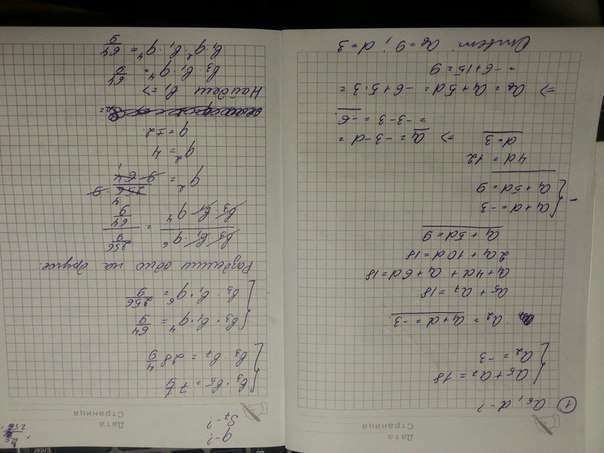 Дата
Страница
① a₆, d - ?
a₅ + a₇ = 18
a₂ = -3
a₂ = a₁ + d = -3
a₅ + a₇ = 18
a₁ + 4d + a₁ + 6d = 18
2a₁ + 10d = 18
a₁ + 5d = 9
a₁ + d = -3
a₁ + 5d = 9
4d = 12
d = 3 => a₁ = -3 - d =
= -3 - 3 = -6
=> a₆ = a₁ + 5d = -6 + 5·3 =
= -6 + 15 = 9
Ответ: a₆ = 9; d = 3
Дата
Страница
q - ?
S₇ - ?
b₃ · b₅ = 7 1/9
b₃ · b₇ = 28 4/9
b₃ · b₁ · q⁴ = 64/9
b₃ · b₁ · q⁶ = 256/9
Разделим одно на другое
b₃ · b₁ · q⁶ / b₃ · b₁ · q⁴ = 256/9 / 64/9
q² = 256 · 9 / 9 · 64
q² = 4
q = ±2
Найдем b₁ =>
b₃ · b₁ · q⁴ = 64/9
b₁ · q² · b₁ · q⁴ = 64/9